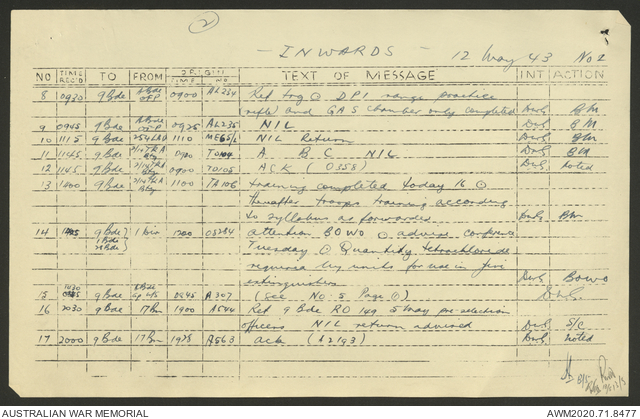 2
- INWARDS - 12 May 43 No 2
NO TIME REC'D TO FROM ORIGIN TIME NO. TEXT OF MESSAGE INT ACTION
8 0930 9 Bde OFP 0900 AL234 Ref trg DP1 range practice
rifle and GAS chamber only completed BM
9 0945 9 Bde OFP 0925 AL235 NIL BM
10 1115 9 Bde 254 LAD 1110 NIL Return BM
11 1145 9 Bde TO104 A B C NIL BM
12 1145 9 Bde 0900 TO105 ACK (0358) noted
13 1400 9 Bde 1100 TA106 training completed today 16
thereafter troops training according
to syllabus as forwarded BM
14 9 Bde 1 Div 1200 attention BOWO advise conference
Tuesday Quantity tetrachloride
required by units for use in fire
extinguishers BOWO
15 9 Bde 0845 A307 (see No: 5 Page 1)
16 2030 9 Bde 17 Bn 1900 A544 Ref 9 Bde RO 149 5 May pre-selection
officers NIL return advised S/C
17 2000 9 Bde 17 Bn 1925 A563 ack (A2193) noted
AUSTRALIAN WAR MEMORIAL AWM2020.71.8477